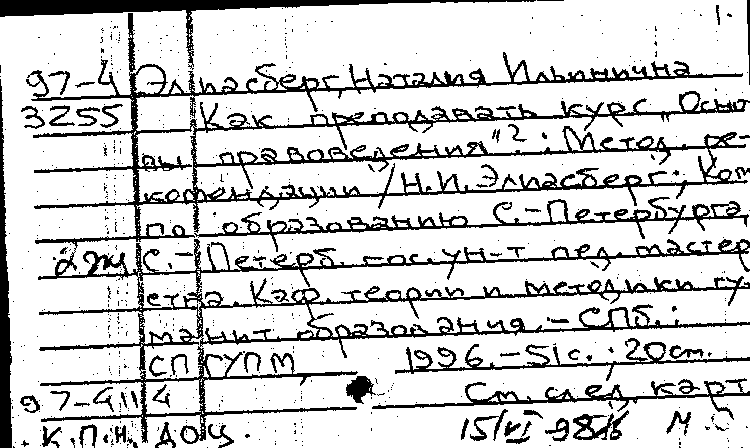 1.
97-4 Элиасберг, Наталия Ильинична
3255 Как преподавать курс „Осно
вы правоведения"? : Метод. ре-
комендации / Н.И. Элиасберг; Ком
по образованию С.-Петербурга,
2 эк. С.-Петерб. гос. ун-т пед. мастер
ства. Каф. теории и методики гу-
манит. образования. – СПб. :
СПГУПМ, 1996. – 51с. ; 20см.
97-4 4 См. след. карт
К.П.Н. доц. 15/VI М